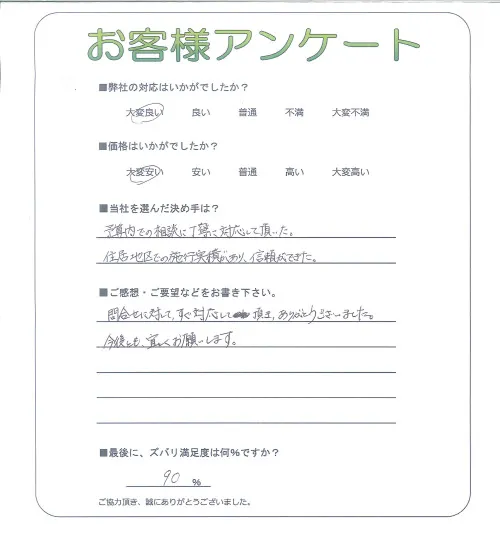 お客様アンケート
■弊社の対応はいかがでしたか？
大変良い 良い 普通 不満 大変不満
■価格はいかがでしたか？
大変安い 安い 普通 高い 大変高い
■当社を選んだ決め手は？
予算内での相談に丁寧に対応して頂いた。
住居地区での施行実積があり、信頼ができた。
■ご感想・ご要望などをお書き下さい。
問合せに対して、すぐ対応して頂き、ありがとうございました。
今後とも、宜しくお願いします。
■最後に、ズバリ満足度は何%ですか？
90 %
ご協力頂き、誠にありがとうございました。